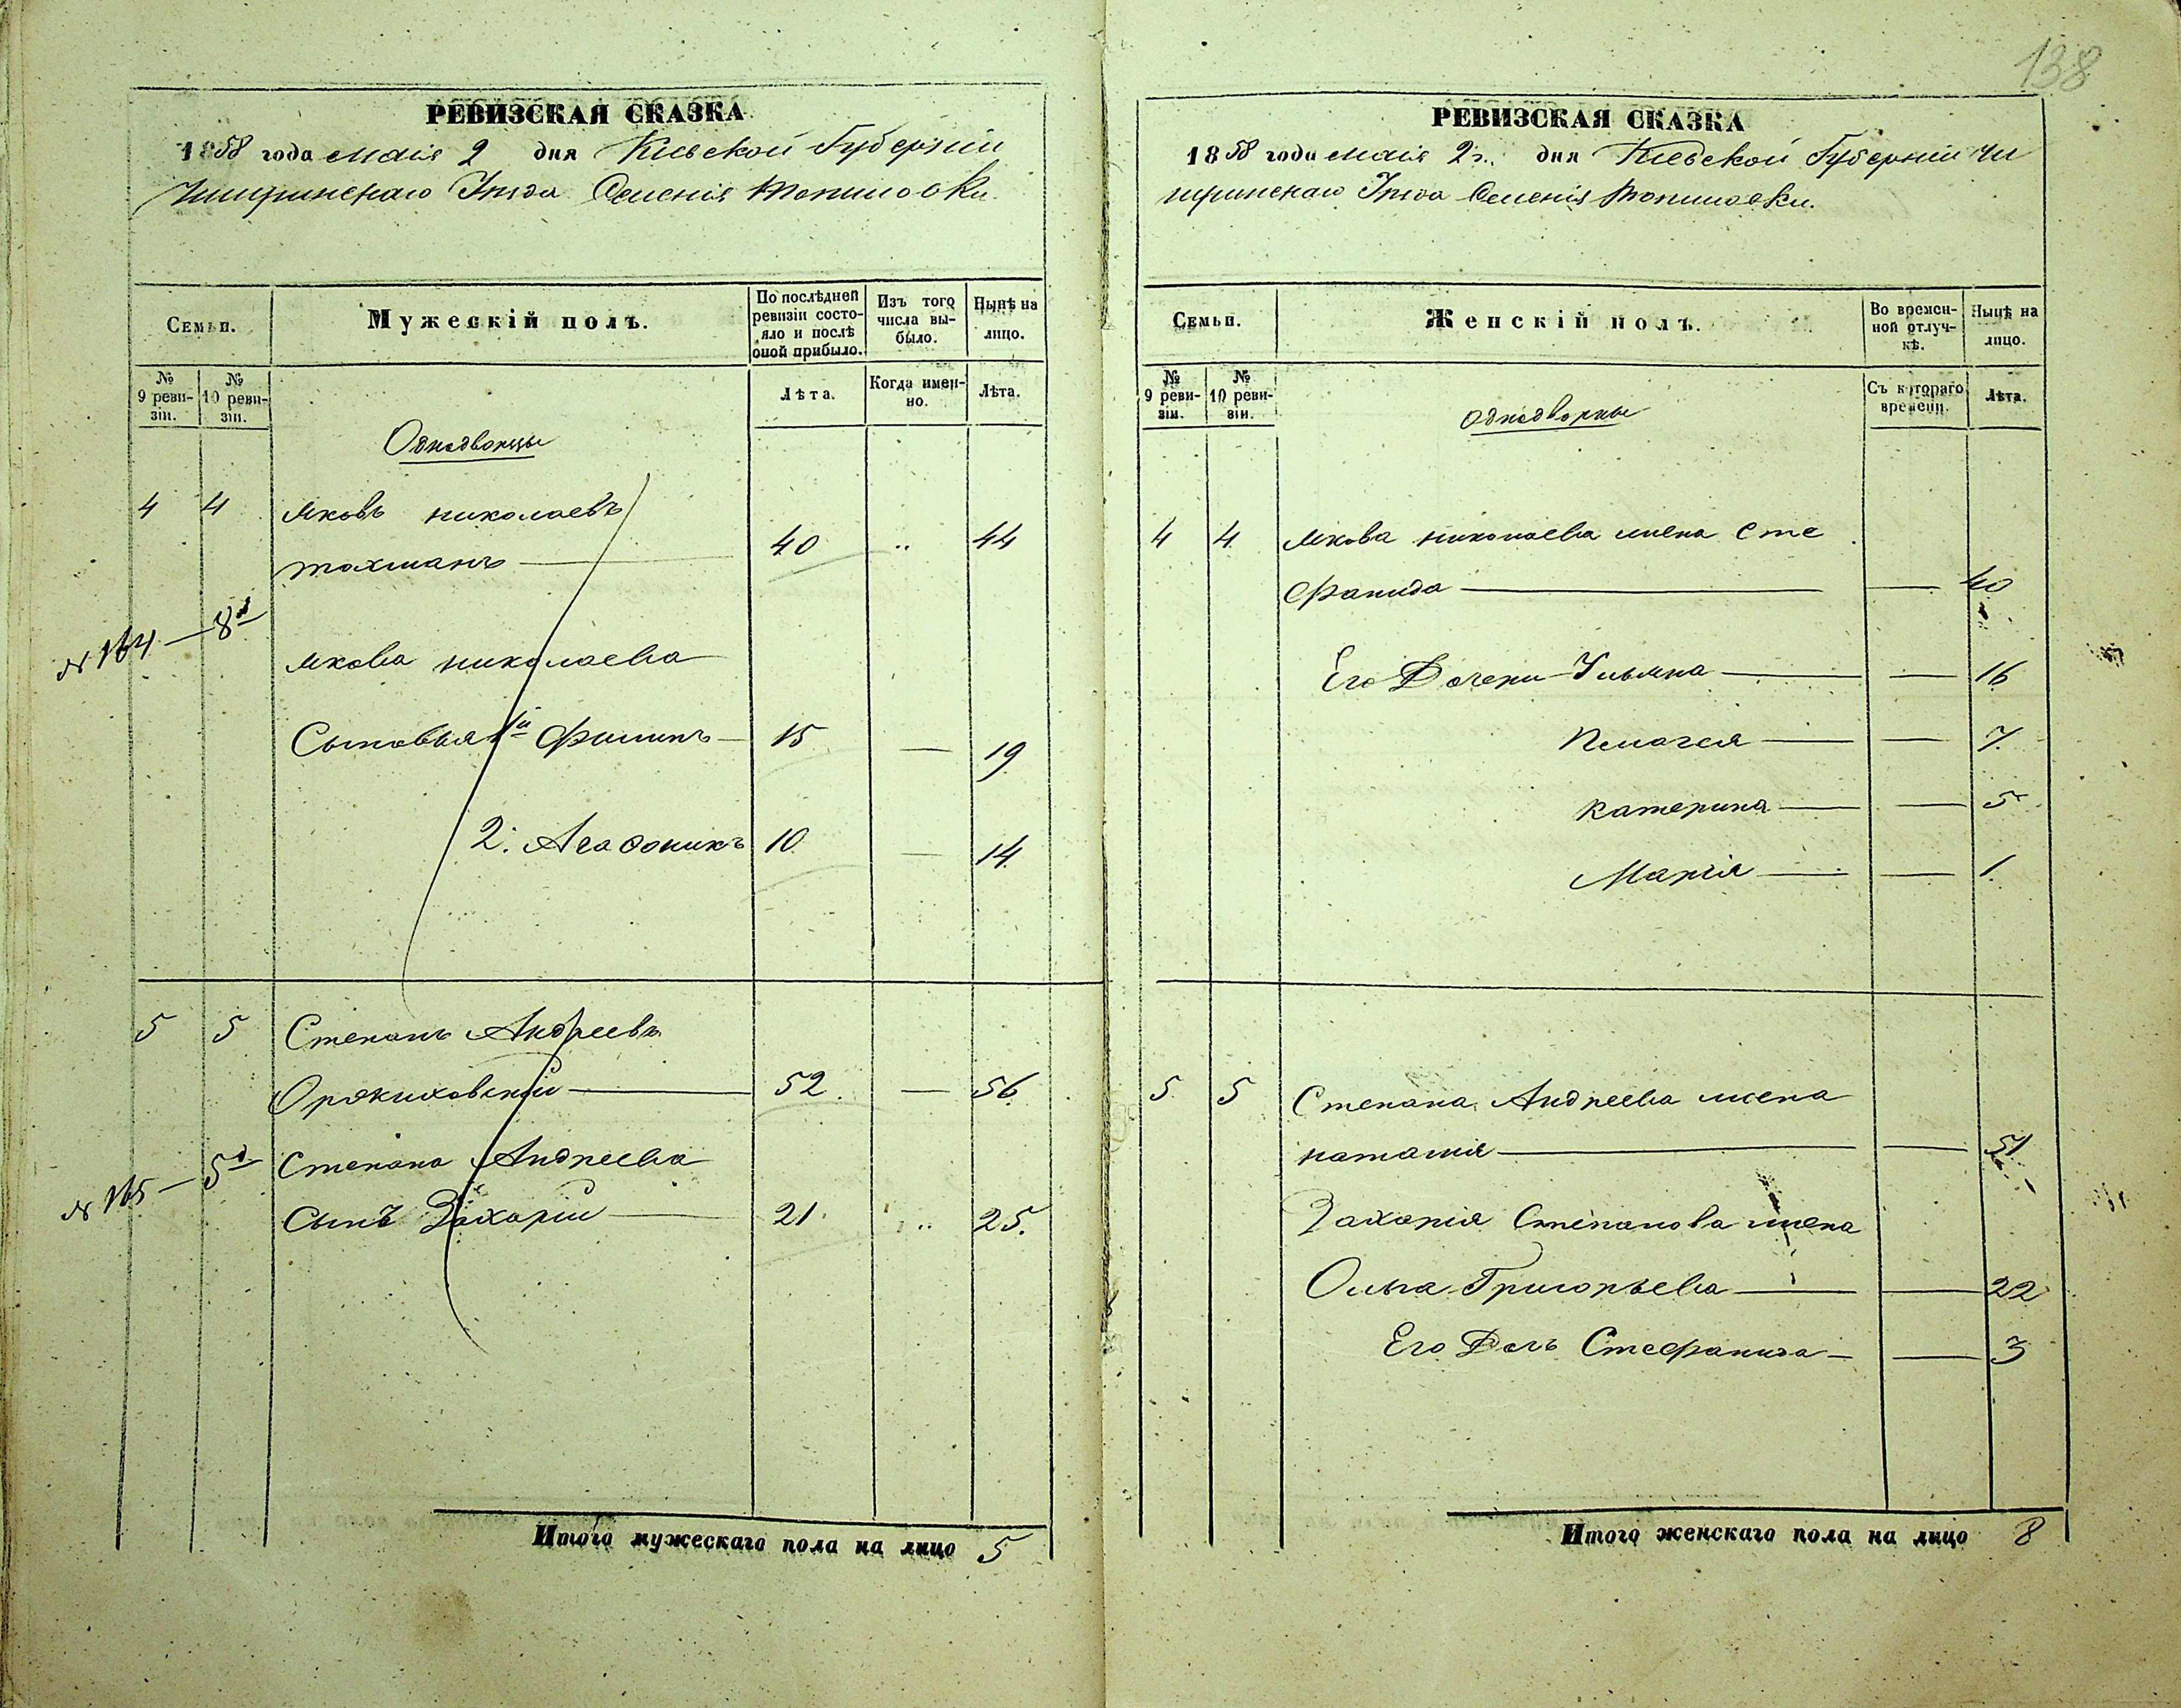 138
РЕВИЗСКАЯ СКАЗКА
1858 года маія 2 дня Кіевской Губерніи
Чигиринскаго Уѣзда Селенія Топиловки
Семьи.
Мужескій полъ.
По послѣдней ревизіи состояло и послѣ оной прибыло.
Изъ того числа выбыло.
Нынѣ на лицо.
№ 9 ревизіи.
№ 10 ревизіи.
Лѣта.
Когда именно.
Лѣта.
Однодворцы
4 4 Яковъ Николаевъ
Тохманъ 40 " 44
№ 164 — 8д
Якова Николаева
Сыновья 1й Филипъ 15 — 19
2. Агафоникъ 10 — 14
5 5 Степанъ Андреевъ
52 — 56
№ 165 — 5д Степана Андреева
Сынъ Захарій 21 " 25.
Итого мужескаго пола на лицо 5
РЕВИЗСКАЯ СКАЗКА
1858 года маія 2г. дня Кіевской Губерніи Чи
гиринскаго Уѣзда Селенія Топиловки.
Семьи.
Женскій полъ.
Во временной отлучкѣ.
Нынѣ на лицо.
№ 9 ревизіи.
№ 10 ревизіи.
Съ котораго времени.
Лѣта.
Однодворцы
4 4 Якова Николаева жена Сте
фанида — 40
Его Дочери Ульяна — 16
Пелагея — 7
Катерина — 5
Марія — 1
5 5 Степана Андреева жена
Наталія — 51
Захарія Степанова жена
Ольга Григорьева — 22
Его Дочь Стефанида — 3
Итого женскаго пола на лицо 8